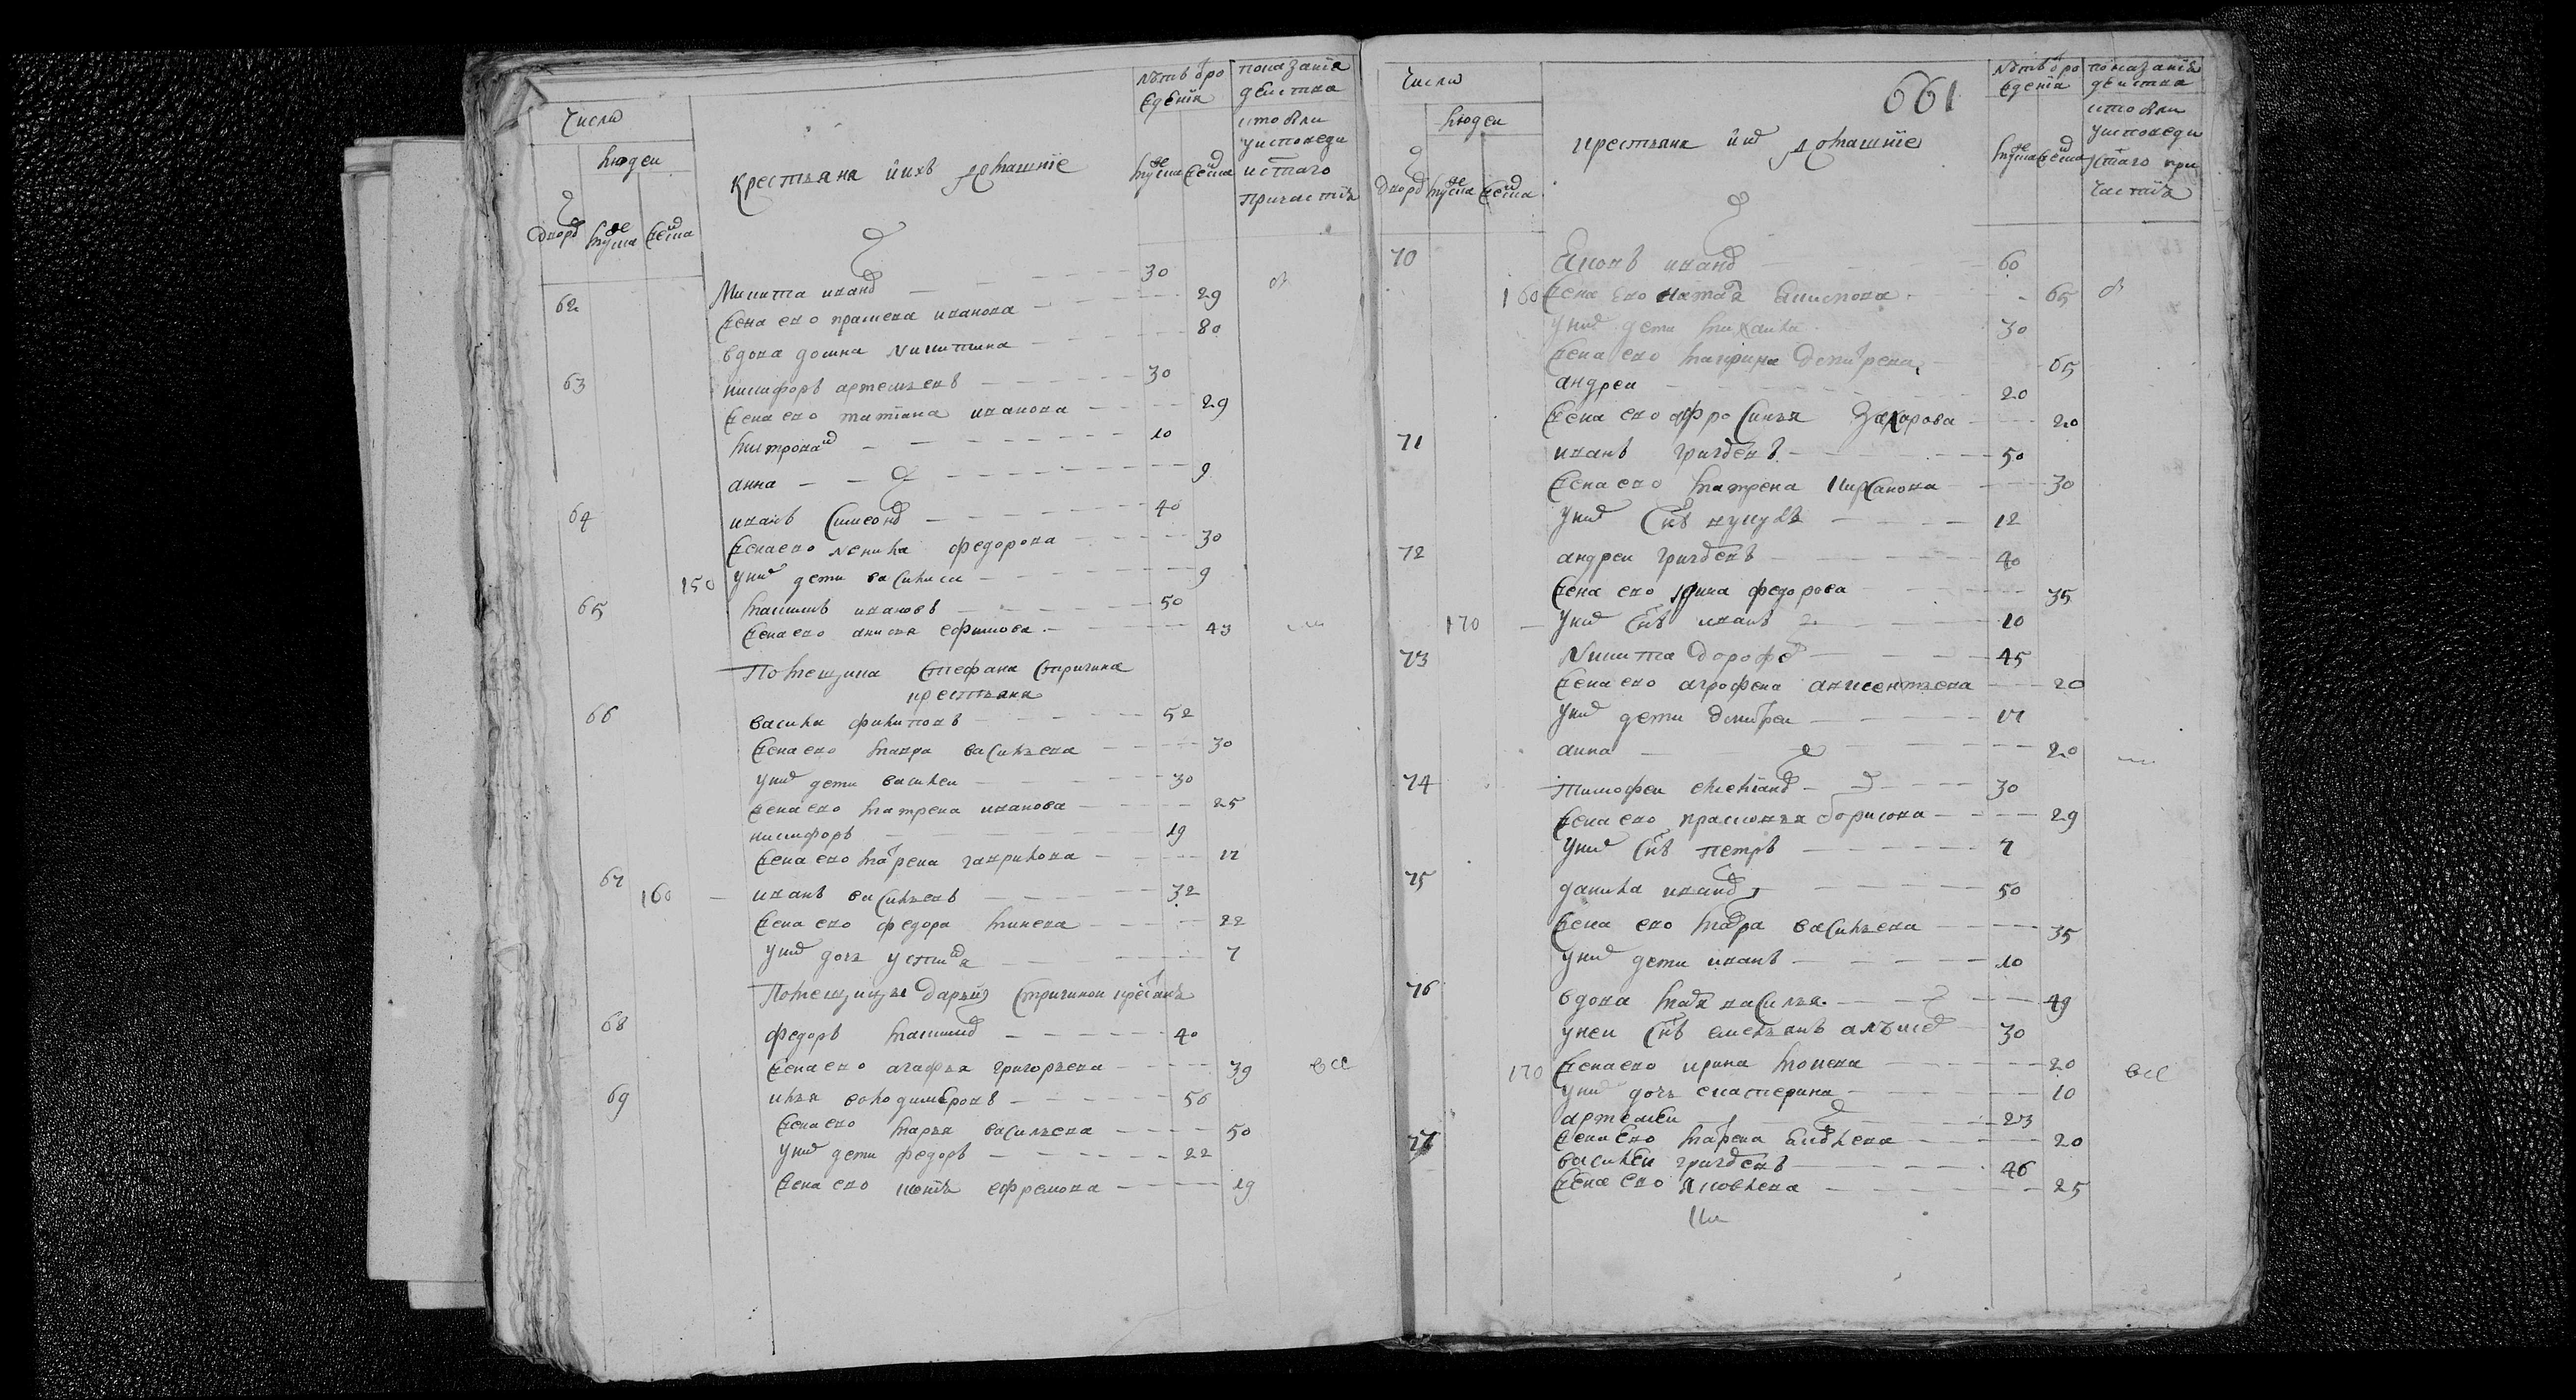 Число
людеи
дворъ мужеска женска
крестьяна и ихъ домашніе
лѣтъ отъ рожденія
мужеска женска
показаніе
действа
кто были
у исповеди
и с̃таго
причастія
62 Никита иванъ 30
жена ево прасковя иванова 29
вдова домна никитина 80
63 никифоръ артемьевъ 30
жена ево татіана иванова 29
митрофанъ 10
анна 9
64 иванъ симеонъ 40
жена ево федорова 30
150 у них дети василиса 9
65 максимъ ивановъ 50
жена ево анисья ефимова 43
Помещика Стефана Стригина
крестьяня
66 василеи филиповъ 52
жена ево мавра васильева 30
у них дети василеи 30
жена ево матрена иванова 25
никифоръ 19
жена ево матрена гаврилова 17
67 160 иванъ васильевъ 32
жена ево федора минева 22
у них дочь устинья 7
Помещицы Дарьи Стригинои крестьянъ
68 федоръ максимъ 40
жена ево агафья григорьева 39 все
69 илья володимеровъ 56
жена ево марья васильева 50
у них дети федоръ 22
жена ево ефремова 19
661
Число
людеи
дворъ мужеска женска
крестьяня и их домашніе
лѣтъ отъ рожденія
мужеска женска
показаніе
действа
кто были
у исповеди
и с̃таго при
частія
70 Яковъ иванъ 60
160 жена ево 65
у них дети михаила 30
жена ево марина Дмитрева 65
андреи 20
жена ево афросинья Захарова 20
71 иванъ григорьевъ 50
жена ево матрена 30
у них с̃нъ 12
72 андреи григорьевъ 40
жена ево ирина федорова 35
170 у них с̃нъ иванъ 10
73 Никита Дорофе 45
жена ево агрофена авксентьева 20
у них дети Дмитреи 17
анна 20
74 тимофеи емелианъ 30
жена ево прасковья борисова 29
у них с̃нъ петръ 7
75 данила иванъ 50
жена ево мавра васильева 35
у них дети иванъ 10
76 вдова марья василья 49
у неи с̃нъ емельянъ алѣксе 30
170 жена ево ирина мокева 20 все
у них дочь екатерина 10
артемеи 23
жена ево матрена 20
77 василеи григорьевъ 46
жена ево яковлева 25